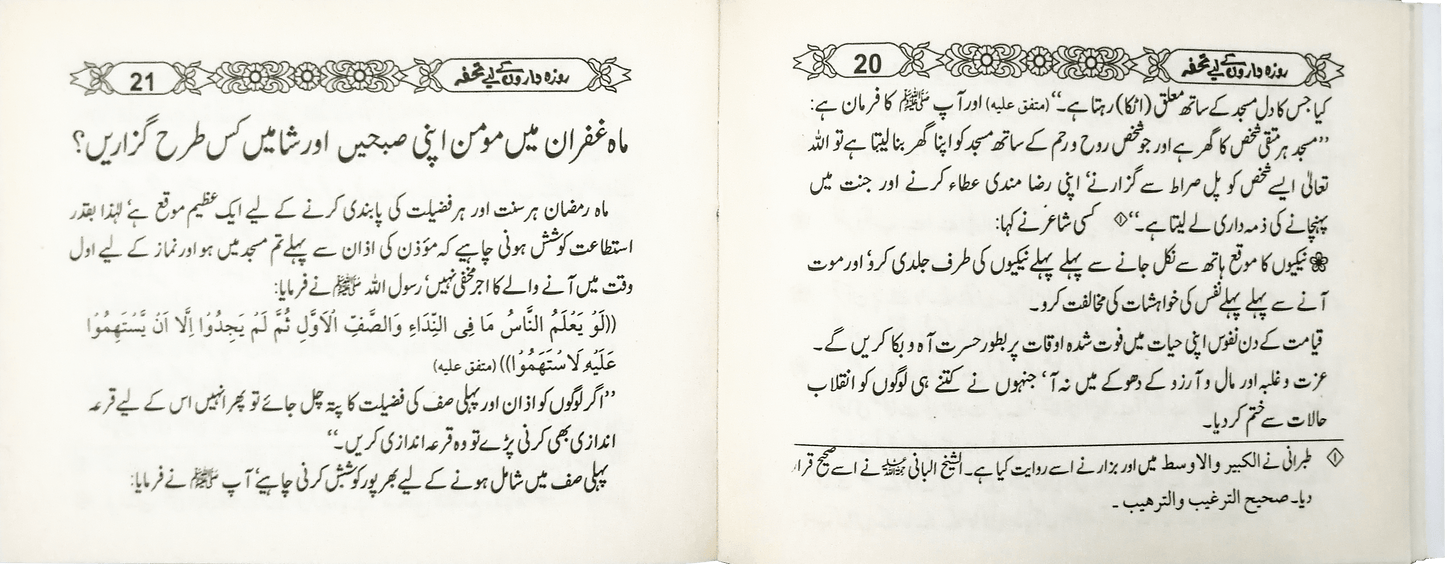 روزہ داروں کے لیے تحفہ
20
کیا جس کا دل مسجد کے ساتھ معلق (اٹکا) رہتا ہے۔‘‘ (متفق علیہ) اور آپ ﷺ کا فرمان ہے:
’’مسجد ہر متقی شخص کا گھر ہے اور جو شخص روح و رحم کے ساتھ مسجد کو اپنا گھر بنا لیتا ہے تو اللہ
تعالیٰ ایسے شخص کو پل صراط سے گزارنے‘ اپنی رضا مندی عطاء کرنے اور جنت میں
پہنچانے کی ذمہ داری لے لیتا ہے۔‘‘ ① کسی شاعر نے کہا:
❀ نیکیوں کا موقع ہاتھ سے نکل جانے سے پہلے پہلے نیکیوں کی طرف جلدی کرو‘ اور موت
آنے سے پہلے پہلے نفس کی خواہشات کی مخالفت کرو۔
قیامت کے دن نفوس اپنی حیات میں فوت شدہ اوقات پر بطور حسرت آہ و بکا کریں گے۔
عزت و غلبہ اور مال و آرزو کے دھوکے میں نہ آ‘ جنہوں نے کتنے ہی لوگوں کو انقلاب
حالات سے ختم کر دیا۔
① طبرانی نے الکبیر والاوسط میں اور بزار نے اسے روایت کیا ہے۔ الشیخ البانی رحمہ اللہ نے اسے صحیح قرار
دیا۔ صحیح الترغیب والترھیب۔
روزہ داروں کے لیے تحفہ
21
ماہ غفران میں مومن اپنی صبحیں اور شامیں کس طرح گزاریں؟
ماہ رمضان ہر سنت اور ہر فضیلت کی پابندی کرنے کے لیے ایک عظیم موقع ہے‘ لہٰذا بقدر
استطاعت کوشش ہونی چاہیے کہ مؤذن کی اذان سے پہلے تم مسجد میں ہو اور نماز کے لیے اول
وقت میں آنے والے کا اجر مخفی نہیں‘ رسول اللہ ﷺ نے فرمایا:
((لَوْ يَعْلَمُ النَّاسُ مَا فِى النِّدَاءِ وَالصَّفِّ الْاَوَّلِ ثُمَّ لَمْ يَجِدُوْا اِلَّا اَنْ يَّسْتَهِمُوْا
عَلَيْهِ لَاسْتَهَمُوْا)) (متفق علیہ)
’’اگر لوگوں کو اذان اور پہلی صف کی فضیلت کا پتہ چل جائے تو پھر انہیں اس کے لیے قرعہ
اندازی بھی کرنی پڑے تو وہ قرعہ اندازی کریں۔‘‘
پہلی صف میں شامل ہونے کے لیے بھرپور کوشش کرنی چاہیے‘ آپ ﷺ نے فرمایا: